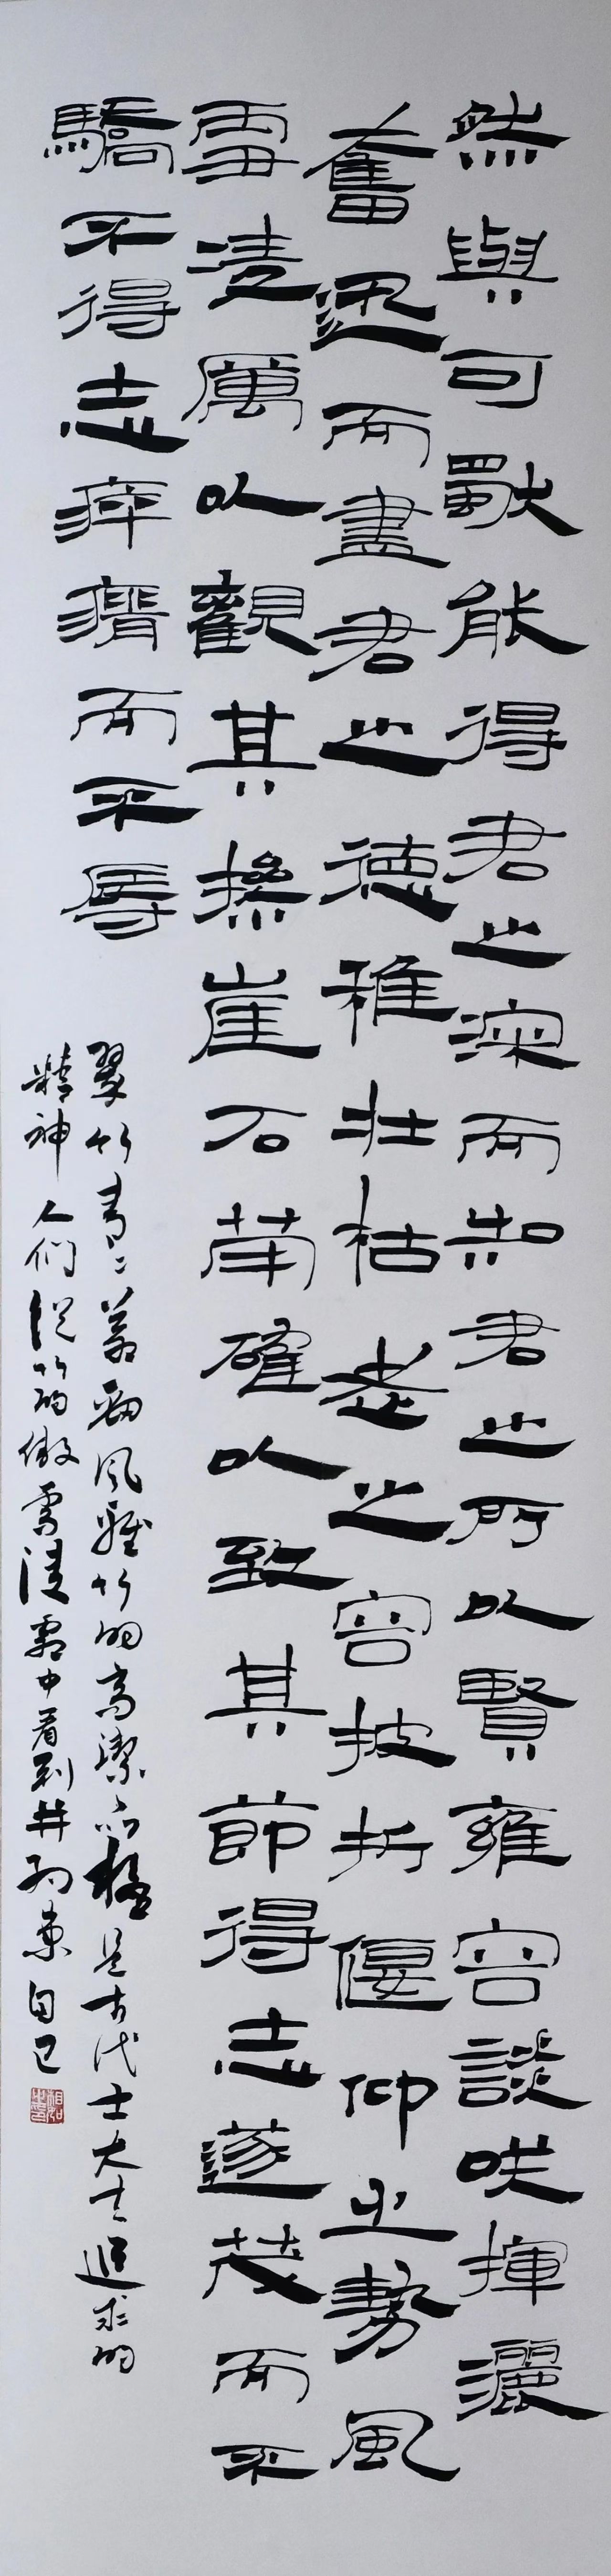 然與可獨能得君之深而知君之所以賢雍容談咲揮灑
奮迅而盡君之德稚壯枯老之容披折偃仰之勢風
雪凌厲以觀其操崖石荦確以致其節得志遂茂而不
驕不得志瘁瘠而不辱
翠竹青〻蒼勁風雅竹的高潔是古代士大夫追求的
精神人們從竹的傲雪凌霜中看到并約束自己